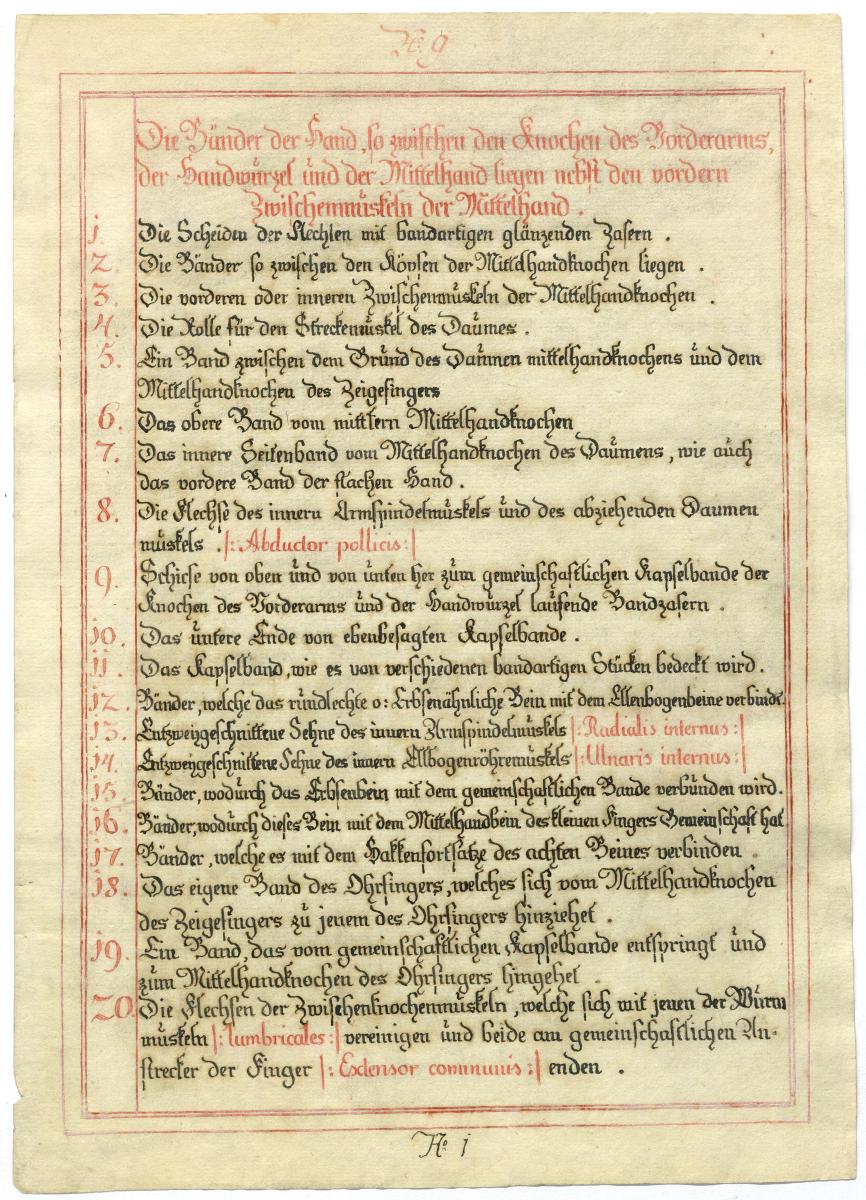 No 9
Die Bänder der Hand, so zwischen den Knochen des Vorderarms,
der Handwürzel und der Mittelhand liegen nebst den vordern
Zwischenmüskeln der Mittelhand.
1. Die Scheiden der Flechsen mit bandartigen glänzenden Zasern.
2. Die Bänder so zwischen den Köpfen der Mittelhandknochen liegen.
3. Die vorderen oder inneren Zwischenmüskeln der Mittelhandknochen.
4. Die Rolle für den Streckemüskel des Daumes.
5. Ein Band zwischen dem Grund des Daumen mittelhandknochens und dem
Mittelhandknochen des Zeigefingers
6. Das obere Band vom mittlern Mittelhandknochen
7. Das innere Seitenband vom Mittelhandknochen des Daumens, wie auch
das vordere Band der flachen Hand.
8. Die Flechse des innern Armspindelmüskels und des abziehenden Daumen
müskels. |: Abductor pollicis :|
9. Schiefe von oben und von unten her zum gemeinschaftlichen Kapselbande der
Knochen des Vorderarms und der Handwürzel laufende Bandzasern.
10. Das untere Ende von ebenbesagten Kapselbande.
11. Das Kapselband, wie es von verschiedenen bandartigen Stücken bedeckt wird.
12. Bänder, welche das rundlechte o: Erbsenähnliche Bein mit dem Ellenbogenbeine verbindt.
13. Entzweygeschnittene Sehne des innern Armspindelmüskels |: Radialis internus :|
14. Entzweygeschnittene Sehne des innern Ellbogenröhremüskels |: Ulnaris internus :|
15. Bänder, wodurch das Erbsenbein mit dem gemeinschaftlichen Bande verbunden wird.
16. Bänder, wodurch dieses Bein mit dem Mittelhandbein des kleinen Fingers Gemeinschaft hat
17. Bänder, welche es mit dem Hakkenfortsatze des achten Beines verbinden.
18. Das eigene Band des Ohrfingers, welches sich vom Mittelhandknochen
des Zeigefingers zu jenem des Ohrfingers hinziehet.
19. Ein Band, das vom gemeinschaftlichen Kapselbande entspringt und
zum Mittelhandknochen des Ohrfingers hingehet.
20. Die Flechsen der Zwischenknochenmüskeln, welche sich mit jenen der Wurm
müskeln |: lumbricales :| vereinigen und beide am gemeinschaftlichen An-
strecker der Finger |: Extensor communis :| enden.
No 1